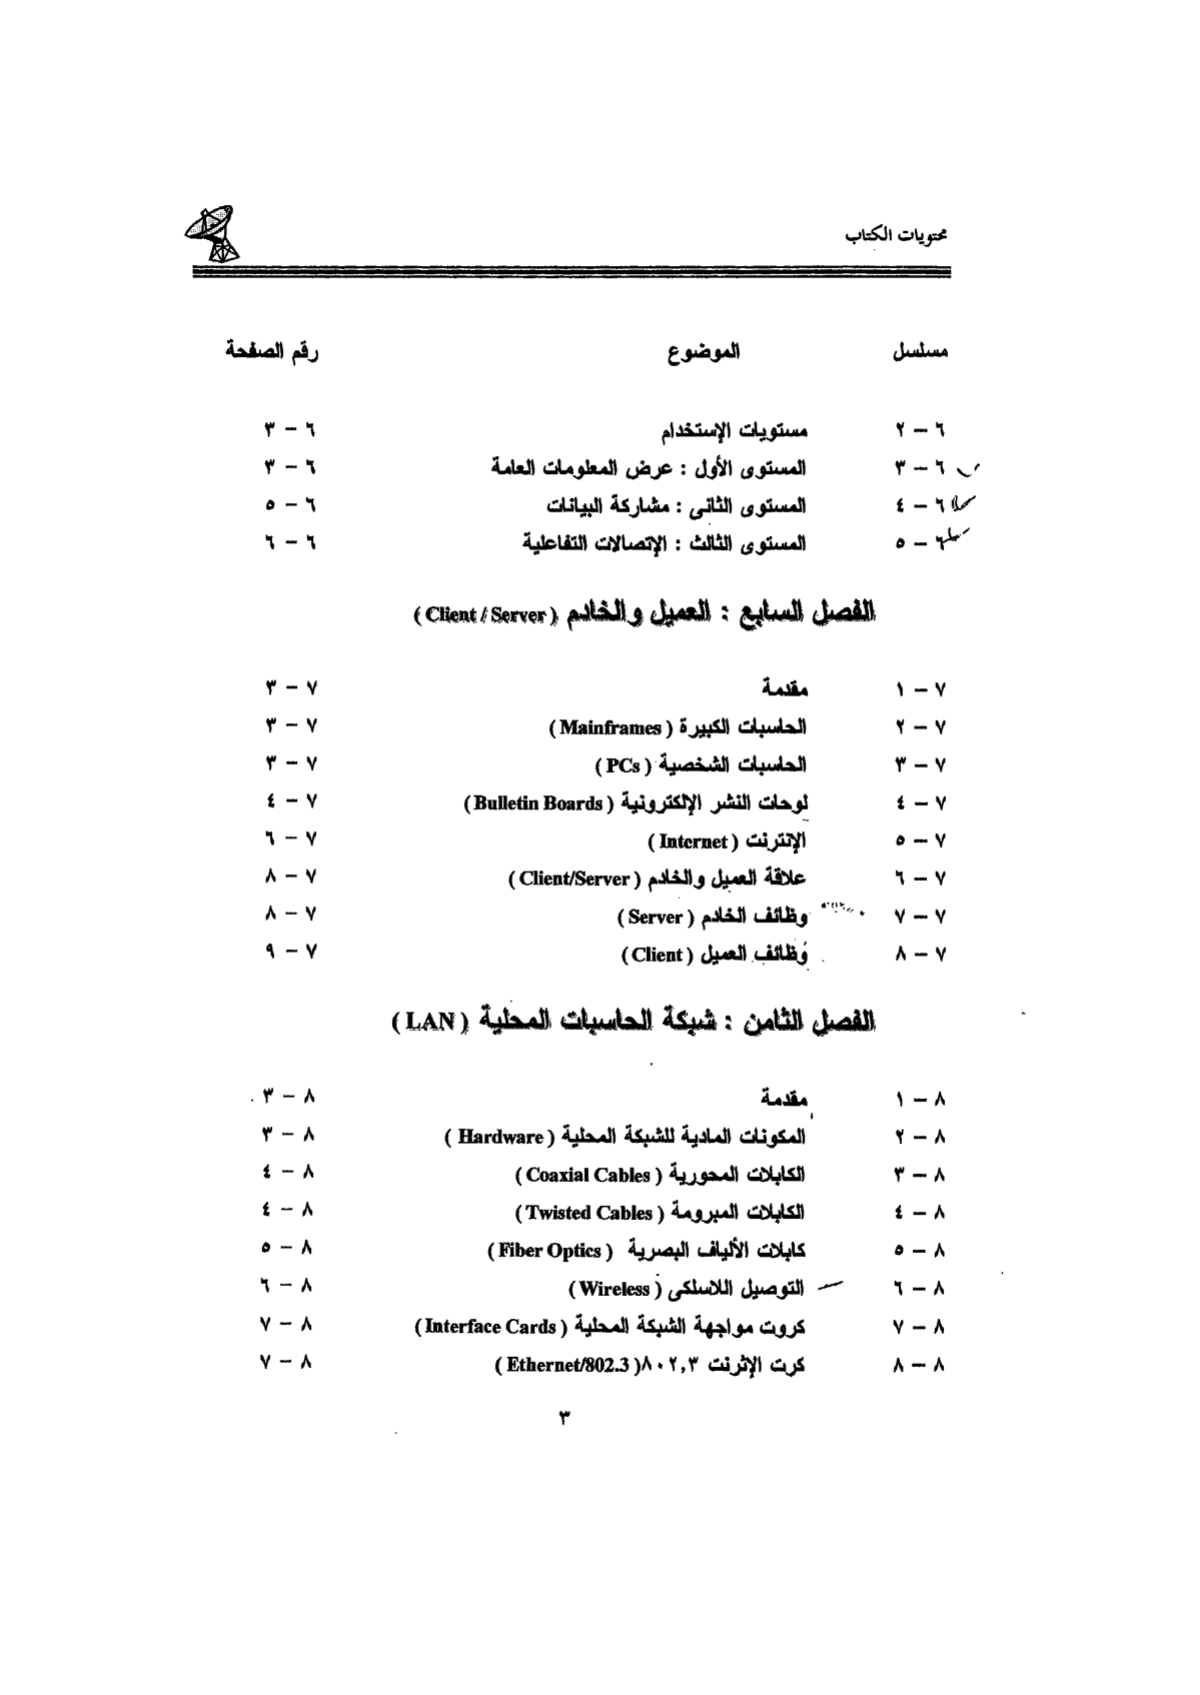 محتويات الكتاب
مسلسل الموضوع رقم الصفحة
٦ – ٢ مستويات الإستخدام ٦ – ٣
٦ – ٣ المستوى الأول : عرض المعلومات العامة ٦ – ٣
٦ – ٤ المستوى الثانى : مشاركة البيانات ٦ – ٥
٦ – ٥ المستوى الثالث : الإتصالات التفاعلية ٦ – ٦
الفصل السابع : العميل والخادم ( Client / Server )
٧ – ١ مقدمة ٧ – ٣
٧ – ٢ الحاسبات الكبيرة ( Mainframes ) ٧ – ٣
٧ – ٣ الحاسبات الشخصية ( PCs ) ٧ – ٣
٧ – ٤ لوحات النشر الإلكترونية ( Bulletin Boards ) ٧ – ٤
٧ – ٥ الإنترنت ( Internet ) ٧ – ٦
٧ – ٦ علاقة العميل والخادم ( Client/Server ) ٧ – ٨
٧ – ٧ وظائف الخادم ( Server ) ٧ – ٨
٧ – ٨ وظائف العميل ( Client ) ٧ – ٩
الفصل الثامن : شبكة الحاسبات المحلية ( LAN )
٨ – ١ مقدمة ٨ – ٣
٨ – ٢ المكونات المادية للشبكة المحلية ( Hardware ) ٨ – ٣
٨ – ٣ الكابلات المحورية ( Coaxial Cables ) ٨ – ٤
٨ – ٤ الكابلات المبرومة ( Twisted Cables ) ٨ – ٤
٨ – ٥ كابلات الألياف البصرية ( Fiber Optics ) ٨ – ٥
٨ – ٦ التوصيل اللاسلكى ( Wireless ) ٨ – ٦
٨ – ٧ كروت مواجهة الشبكة المحلية ( Interface Cards ) ٨ – ٧
٨ – ٨ كرت الإثرنت ٨٠٢,٣ ( Ethernet/802.3 ) ٨ – ٧
٣